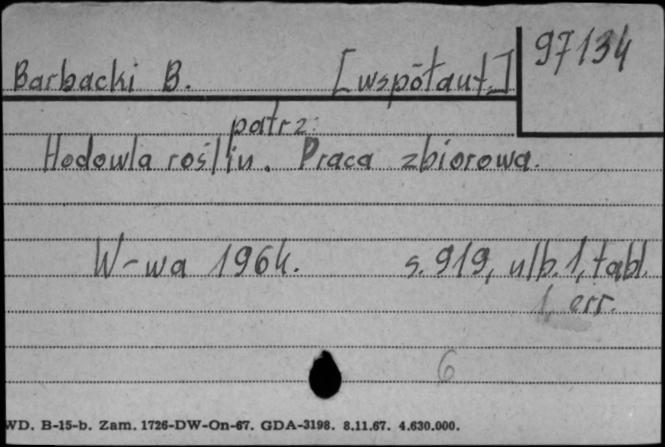 97134
Barbacki B. [współaut.]
patrz:
Hodowla roślin. Praca zbiorowa.
W-wa 1964. s. 919, ulb. 1, tabl.
1, err.
6
WD. B-15-b. Zam. 1726-DW-On-67. GDA-3198. 8.11.67. 4.630.000.